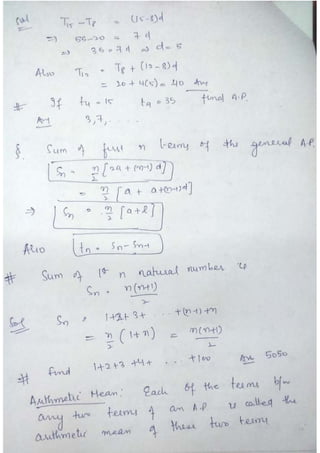 Sol T₁₅ - T₈ = (15-8)d
=> 55-20 = 7d
=> 35 = 7d => d = 5
Also T₁₂ = T₈ + (12-8)d
= 20 + 4(5) = 40 Ans
# If t₄ = 15 t₉ = 35 find A.P.
Ans 3, 7, ....
§. Sum of first n terms of the general A.P.
Sₙ = n/2 [2a + (n-1)d]
= n/2 [a + a+(n-1)d]
=> Sₙ = n/2 [a+l]
Also tₙ = Sₙ - Sₙ₋₁
# Sum of 1st n natural number is
Sₙ = n(n+1)/2
Sol Sₙ = 1+2+3+ ... +(n-1)+n
= n/2 (1+n) = n(n+1)/2
# find 1+2+3+4+ ... +100 Ans 5050
Arithmetic Mean: Each of the terms b/w
any two terms of an A.P is called the
arithmetic mean of these two terms